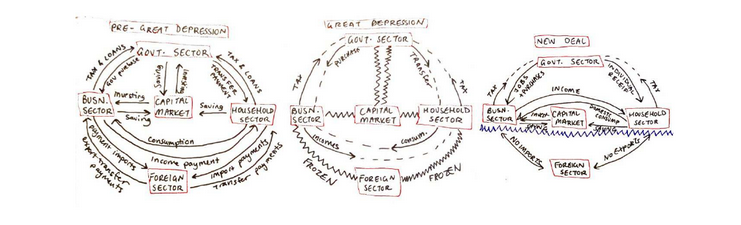 PRE-GREAT DEPRESSION
GOVT. SECTOR
TAX & LOANS
GOV PURCHASE
Saving
TRANSFER
PAYMENT
TAX & LOANS
BUSN.
SECTOR
Saving
CAPITAL
MARKET
Saving
HOUSEHOLD
SECTOR
Consumption
Income payment
payment imports
export-transfer
payments
import payments
transfer payments
FOREIGN
SECTOR
GREAT DEPRESSION
GOVT. SECTOR
TAX
PURCHASE
TRANSFER
TAX
BUSN.
SECTOR
CAPITAL
MARKET
HOUSEHOLD
SECTOR
incomes
consum.
FROZEN
FROZEN
FOREIGN
SECTOR
NEW DEAL
GOVT. SECTOR
TAX
JOBS
PURCHASES
INDIVIDUAL
TAX
INCOME
BUSN.
SECTOR
CAPITAL
MARKET
DOMESTIC
CONSUMP.
HOUSEHOLD
SECTOR
NO IMPORTS
NO EXPORTS
FOREIGN
SECTOR